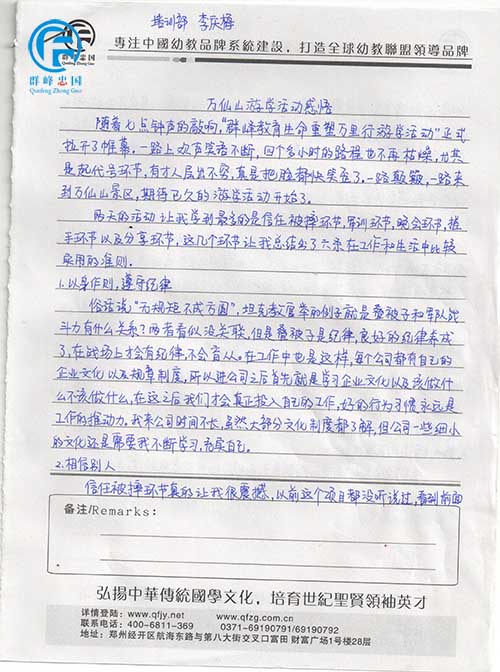 培训部 李庆梅
群峰忠国
Qunfeng Zhong Guo
專注中國幼教品牌系統建設,打造全球幼教聯盟領導品牌
万仙山游学活动感悟
随着七点钟声的敲响,“群峰教育生命重塑万里行游学活动”正式
拉开了帷幕。一路上欢声笑语不断,四个多小时的路程也不再枯燥,尤其
是起代号环节,有才人层出不穷,真是把脸都快笑歪了。一路颠簸,一路来
到万仙山景区,期待已久的游学活动开始了。
两天的活动让我学到最多的是信任被摔环节,军训环节,晚会环节,
手环节以及分享环节,这几个环节让我总结出了六条在工作和生活中比较
实用的准则。
1.以身作则,遵守纪律
俗话说“无规矩不成方圆”,坦克教官举的例子就是叠被子和军队战
斗力有什么关系?两者看似没关联,但是叠被子是纪律,良好的纪律养成
了,在战场上才会有纪律,不会盲从。在工作中也是这样,每个公司都有自己的
企业文化以及规章制度,所以进公司之后首先就是学习企业文化以及该做什
么不该做什么,在这之后我们才会真正投入自己的工作,好的行为习惯永远是
工作的推动力。我来公司时间不长,虽然大部分文化制度都了解,但公司一些细小
的文化还是需要我不断学习,充实自己。
2.相信别人
信任被摔环节真的让我很震撼,以前这个项目都没听说过,看到前面
备注/Remarks:
弘揚中華傳統國學文化,培育世紀聖賢領袖英才
详情登陆:www.qfjy.net www.qfzg.com.cn
联系电话:400-6811-369 0371-69190791/69190792
地址:郑州经开区航海东路与第八大街交叉口富田 财富广场1号楼28层